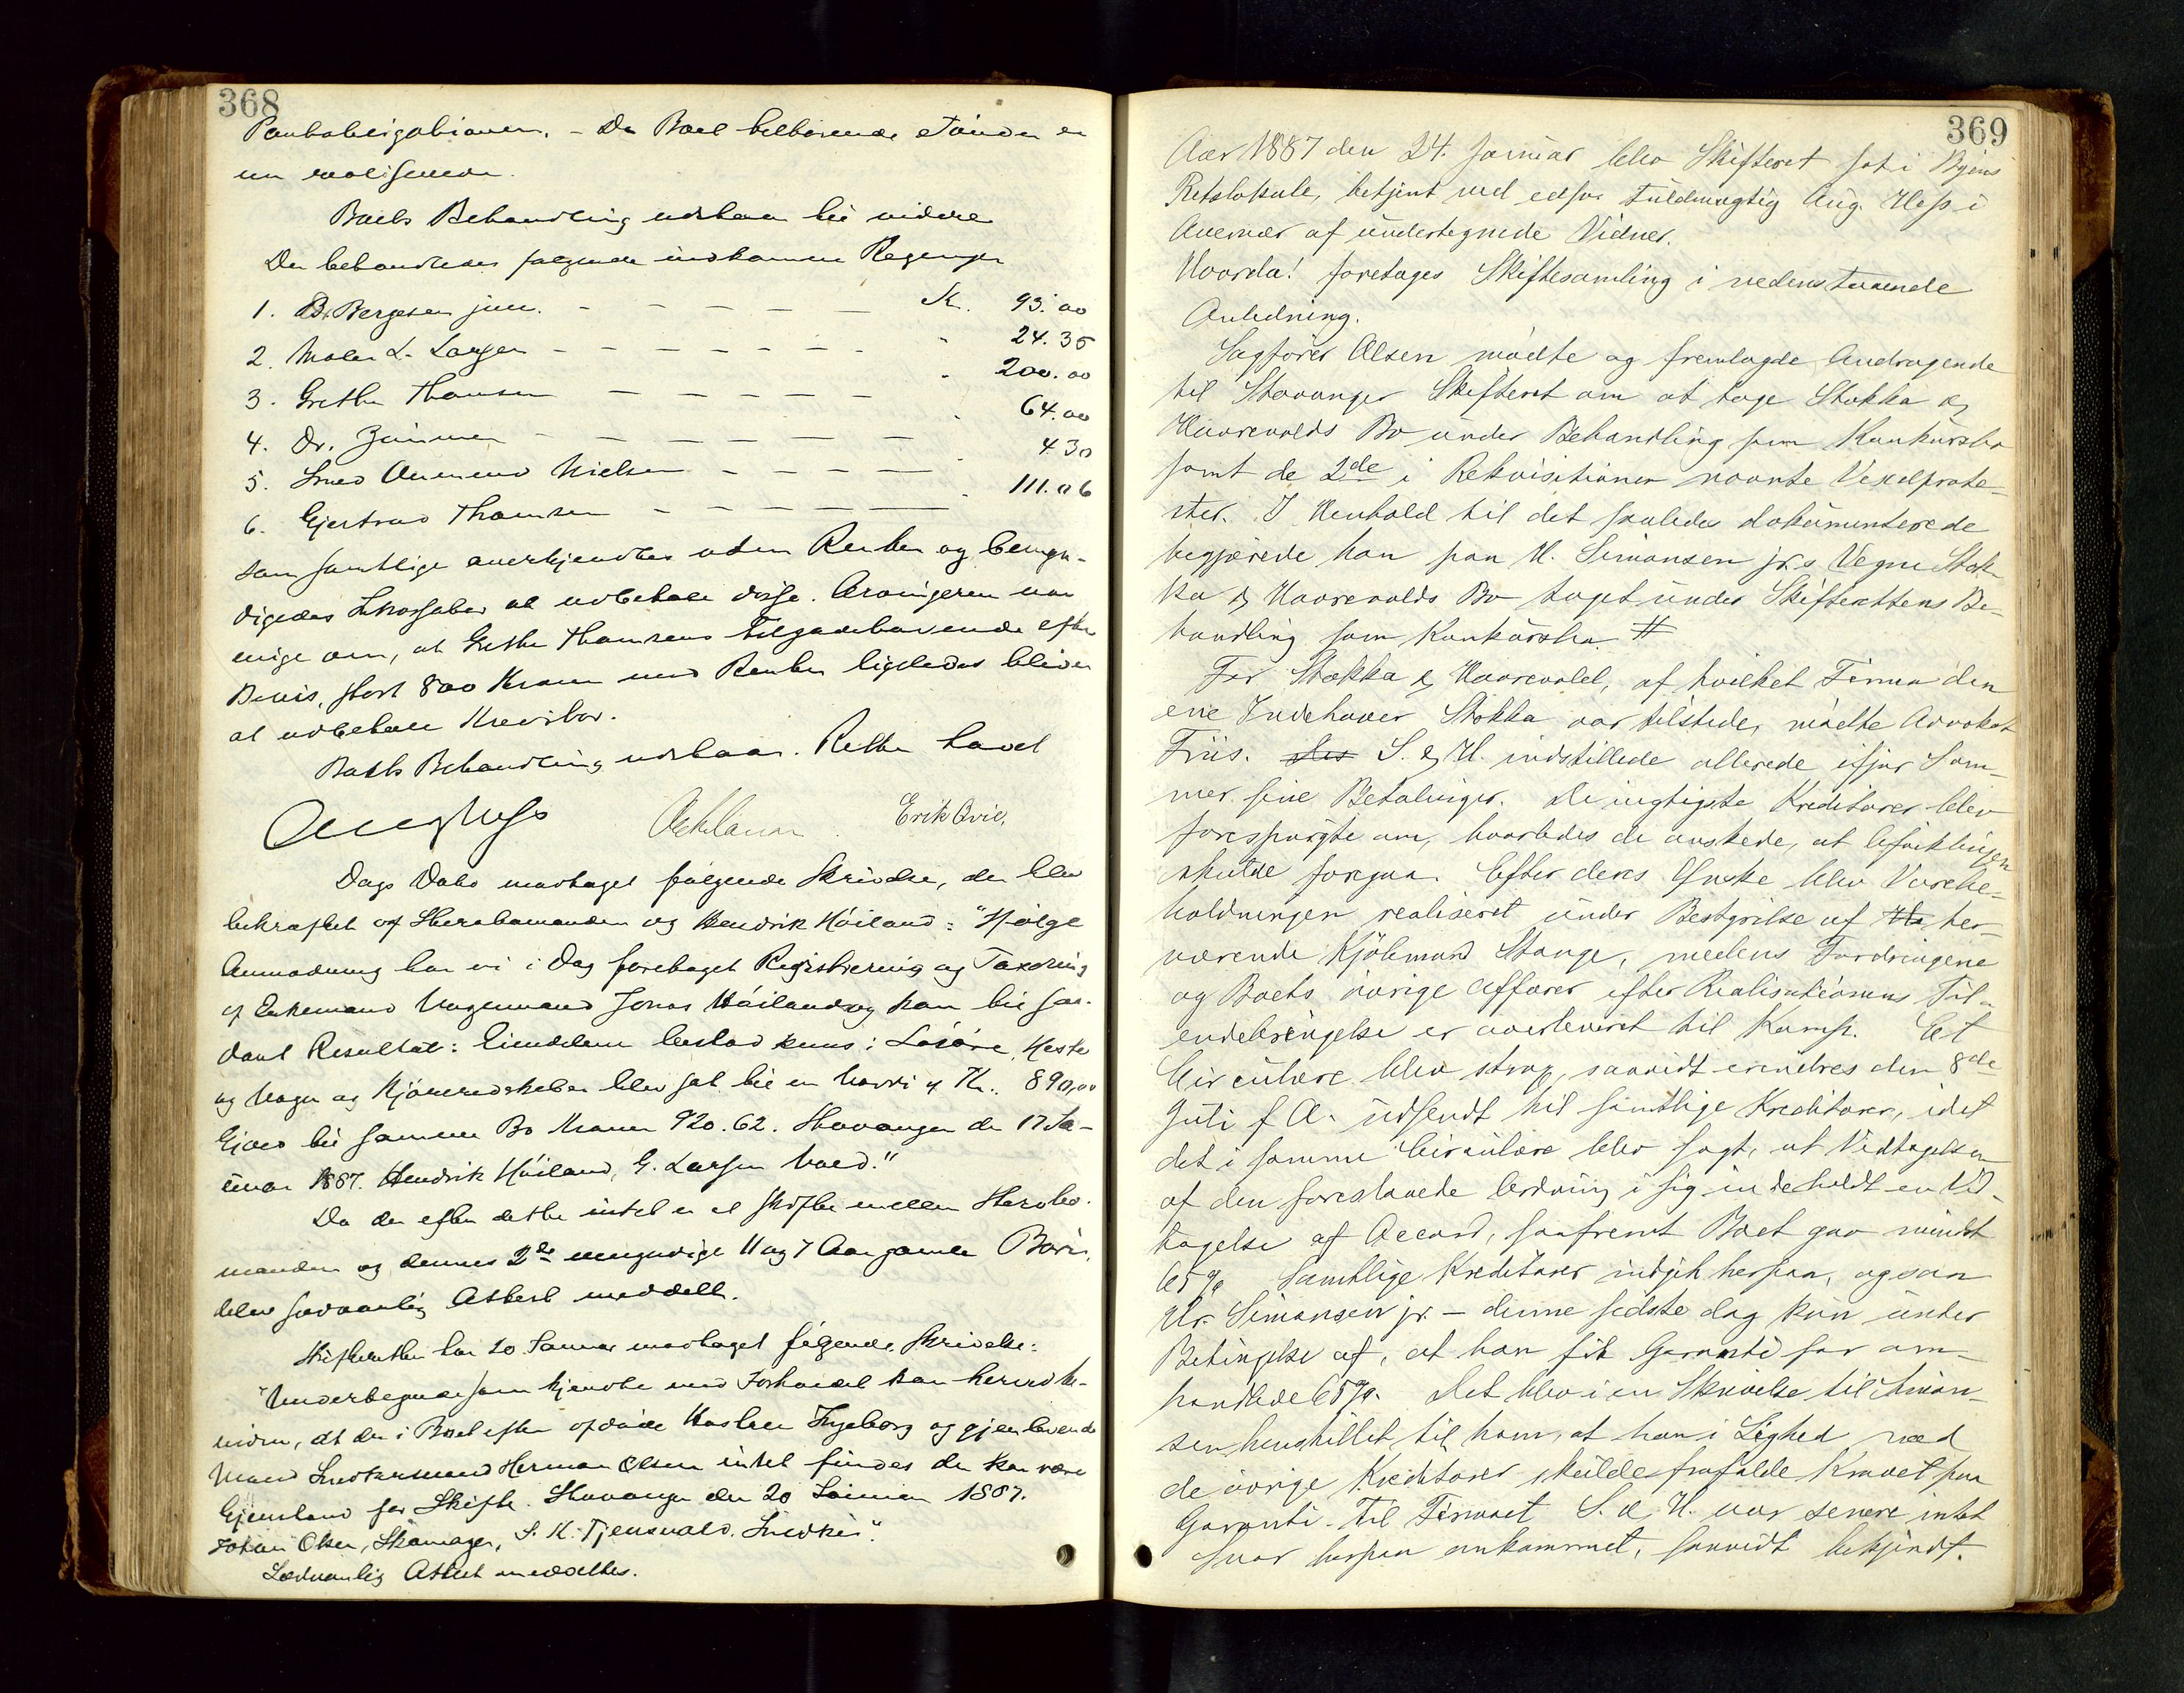 368
Pantobligationen. - De Boet tilhørende eiendom er
nu realiseret.
Boets Behandling udstaar til videre
Der behandledes følgende indkomne Regninger
1. B. Bergesen jun. - - - - - Kr. 93.00
2. Maler L. Larsen - - - - - - - " 24.35
3. Grethe Thomsen - - - - - " 200.00
4. Dr. Zimmer - - - - - - - " 64.00
5. Smed Nielsen - - - - - 4 30
6. Gjertrud Thomsen - - - - - - " 111.06
som samtlige anerkjendtes uden Renter og bemyn-
digedes Inkassator at udbetale disse. Arvingerne var
enige om, at Grethe Thomsens Tilgodehavende efter
Bevis, stort 800 Kroner med Renter ligeledes bliver
at udbetale Kreditor.
Boets Behandling udstaar. Retten hævet
Aug Hess Erik Qvie.
Dags Dato modtaget følgende Skrivelse, der blev
bekræftet af Sterbomanden og Hendrik Høiland: "Ifølge
Anmodning har vi i Dag foretaget Registrering og Taxering
af Enkemand Vognmand Jonas Høiland og kom til saa-
dant Resultat: Eiendelene bestod kuns i Løsøre, Heste
og Vogn og Kjøreredskaber blev sat til en Værdi af Kr. 890,00
Gjæld til samme Bo Kroner 920.62. Stavanger den 17 Ja-
nuar 1887. Hendrik Høiland, G. Larsen Vaed."
Da der efter dette intet er at skifte mellem Sterbo-
manden og dennes 2de umyndige 11 og 7 Aar gamle Børn,
blev sædvanlig Attest meddelt.
Skifteretten har 20 Januar modtaget følgende Skrivelse:
"Undertegnede som kjendte med Forholdet kan herved be-
vidne, at der i Boet efter afdøde Hustru Ingeborg og gjenlevende
Mand Snedkersvend Herman Olsen intet findes der kan være
Gjenstand for Skifte. Stavanger den 20 Januar 1887.
Johan Olsen, Skomager, S. K. Tjensvold. Snedker."
Sædvanlig Attest meddeltes.
369
Aar 1887 den 24. Januar blev Skifteret sat i Byens
Retslokale, betjent ved edsvor. Fuldmægtig Aug. Hess i
Overvær af undertegnede Vidner.
Hvorda! foretages Skiftesamling i nedenstaaende
Anledning.
Sagfører Olsen mødte og fremlagde Andragende
til Stavanger Skifteret om at tage Stokka &
Haarevolds Bo under Behandling som Konkursbo
samt de 2de i Rekvisitionen nævnte Vexelprote-
ster. I Henhold til det saaledes dokumenterede
begjærede han paa H. Simonsen jr.s Vegne Stok
ka & Haarevolds Bo taget under Skifterettens Be-
handling som Konkursbo. #
For Stokka & Haarevold, af hvilket Firma den
ene Indehaver Stokka var tilstede, mødte Advokat
Friis. S. & H. indstillede allerede ifjor Som-
mer sine Betalinger. De vigtigste Kreditorer blev
forespurgte om, hvorledes de ønskede, at Afviklingen
skulde foregaa. Efter deres Ønske blev Varebe-
holdningen realiseret under Bestyrelse af her-
værende Kjøbmand Stange, medens Fordringene
og Boets øvrige Affærer efter Realisationens Til-
endebringelse er overleveret til Kamp. Et
Circulære blev strax, saavidt erindres den 8de
Juli f. A. udsendt til samtlige Kreditorer, idet
det i samme Circulære blev sagt, at Vedtagelsen
af den foreslaaede Ordning i sig indeholdt en Ved-
tagelse af Accord, saafremt Boet gav mindst
65 % Samtlige Kreditorer indgik herpaa, ogsaa
Hr. Simonsen jr. - denne sidste dog kun under
Betingelse af, at han fik Garanti for om-
handlede 65%. Det blev i en Skrivelse til Simon-
sen henstillet til ham, at han i Lighed med
de øvrige Kreditorer skulde frafalde Kravet paa
Garanti. Til Firmaet S. & H. var senere intet
Svar herpaa ankommet, saavidt bekjendt.